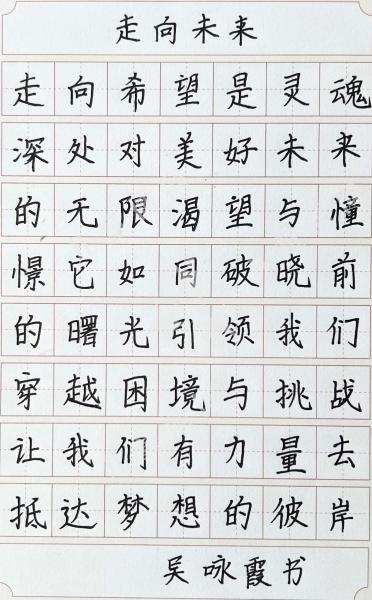 走向未来
走向希望是灵魂
深处对美好未来
的无限渴望与憧
憬它如同破晓前
的曙光引领我们
穿越困境与挑战
让我们有力量去
抵达梦想的彼岸
吴咏霞书